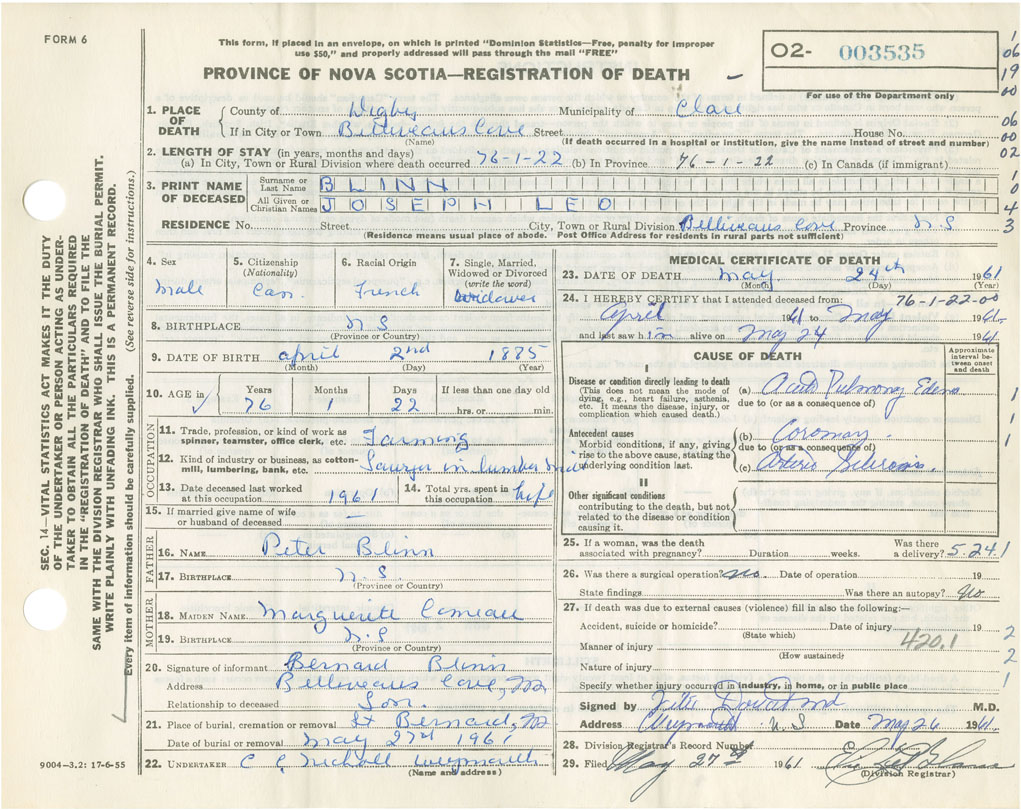 FORM 6
This form, if placed in an envelope, on which is printed "Dominion Statistics—Free, penalty for improper
use $50," and properly addressed will pass through the mail "FREE"
PROVINCE OF NOVA SCOTIA—REGISTRATION OF DEATH
O2- 003535
For use of the Department only
1 06 19 00 06 00 02 1 0 4 3
SEC. 14—VITAL STATISTICS ACT MAKES IT THE DUTY
OF THE UNDERTAKER OR PERSON ACTING AS UNDER-
TAKER TO OBTAIN ALL THE PARTICULARS REQUIRED
IN THE "REGISTRATION OF DEATH" AND TO FILE THE
SAME WITH THE DIVISION REGISTRAR WHO SHALL ISSUE THE BURIAL PERMIT.
WRITE PLAINLY WITH UNFADING INK. THIS IS A PERMANENT RECORD.
Every item of information should be carefully supplied. (See reverse side for instructions.)
1. PLACE OF DEATH
County of Digby Municipality of Clare
If in City or Town Belliveaus Cove Street House No.
(Name) (If death occurred in a hospital or institution, give the name instead of street and number)
2. LENGTH OF STAY (in years, months and days)
(a) In City, Town or Rural Division where death occurred 76-1-22 (b) In Province 76-1-22 (c) In Canada (if immigrant)
3. PRINT NAME OF DECEASED
Surname or Last Name BLINN
All Given or Christian Names JOSEPH LEO
RESIDENCE No. Street City, Town or Rural Division Belliveaus Cove Province N S
(Residence means usual place of abode. Post Office Address for residents in rural parts not sufficient)
4. Sex Male
5. Citizenship (Nationality) Can.
6. Racial Origin French
7. Single, Married, Widowed or Divorced (write the word) Widower
8. BIRTHPLACE N S
(Province or Country)
9. DATE OF BIRTH April 2nd 1885
(Month) (Day) (Year)
10. AGE in Years Months Days If less than one day old
76 1 22 hrs. or min.
OCCUPATION
11. Trade, profession, or kind of work as
spinner, teamster, office clerk, etc. Farming
12. Kind of industry or business, as cotton-
mill, lumbering, bank, etc. Sawyer in lumber
13. Date deceased last worked
at this occupation 1961
14. Total yrs. spent in
this occupation life
15. If married give name of wife
or husband of deceased —
FATHER
16. NAME Peter Blinn
17. BIRTHPLACE N. S.
(Province or Country)
MOTHER
18. MAIDEN NAME Marguerite Comeau
19. BIRTHPLACE N. S
(Province or Country)
20. Signature of informant Bernard Blinn
Address Belliveaus Cove, NS
Relationship to deceased Son.
21. Place of burial, cremation or removal St Bernard, NS
Date of burial or removal May 27th 1961
22. UNDERTAKER C C Nicholl Weymouth
(Name and address)
9004—3.2: 17-6-55
MEDICAL CERTIFICATE OF DEATH
23. DATE OF DEATH May 24th 1961
(Month) (Day) (Year)
24. I HEREBY CERTIFY that I attended deceased from: 76-1-22-00
April 1961 to May 1961
and last saw him alive on May 24 1961
CAUSE OF DEATH
Approximate interval between onset and death
I
Disease or condition directly leading to death
(This does not mean the mode of
dying, e.g., heart failure, asthenia,
etc. It means the disease, injury, or
complication which caused death.)
(a) Acute Pulmonary Edema
due to (or as a consequence of)
Antecedent causes
Morbid conditions, if any, giving
rise to the above cause, stating the
underlying condition last.
(b) Coronary.
due to (or as a consequence of)
(c) Arterio Sclerosis.
II
Other significant conditions
contributing to the death, but not
related to the disease or condition
causing it.
1
1
1
25. If a woman, was the death
associated with pregnancy? Duration weeks. Was there a delivery? 5.24.1
26. Was there a surgical operation? No. Date of operation 19
State findings Was there an autopsy? No
27. If death was due to external causes (violence) fill in also the following:—
Accident, suicide or homicide? Date of injury 19
(State which)
420.1
Manner of injury
(How sustained)
Nature of injury
Specify whether injury occurred in industry, in home, or in public place
2
2
1
Signed by M.D.
Address Weymouth N S Date May 26 1961.
28. Division Registrar's Record Number
29. Filed May 27th 1961
(Division Registrar)